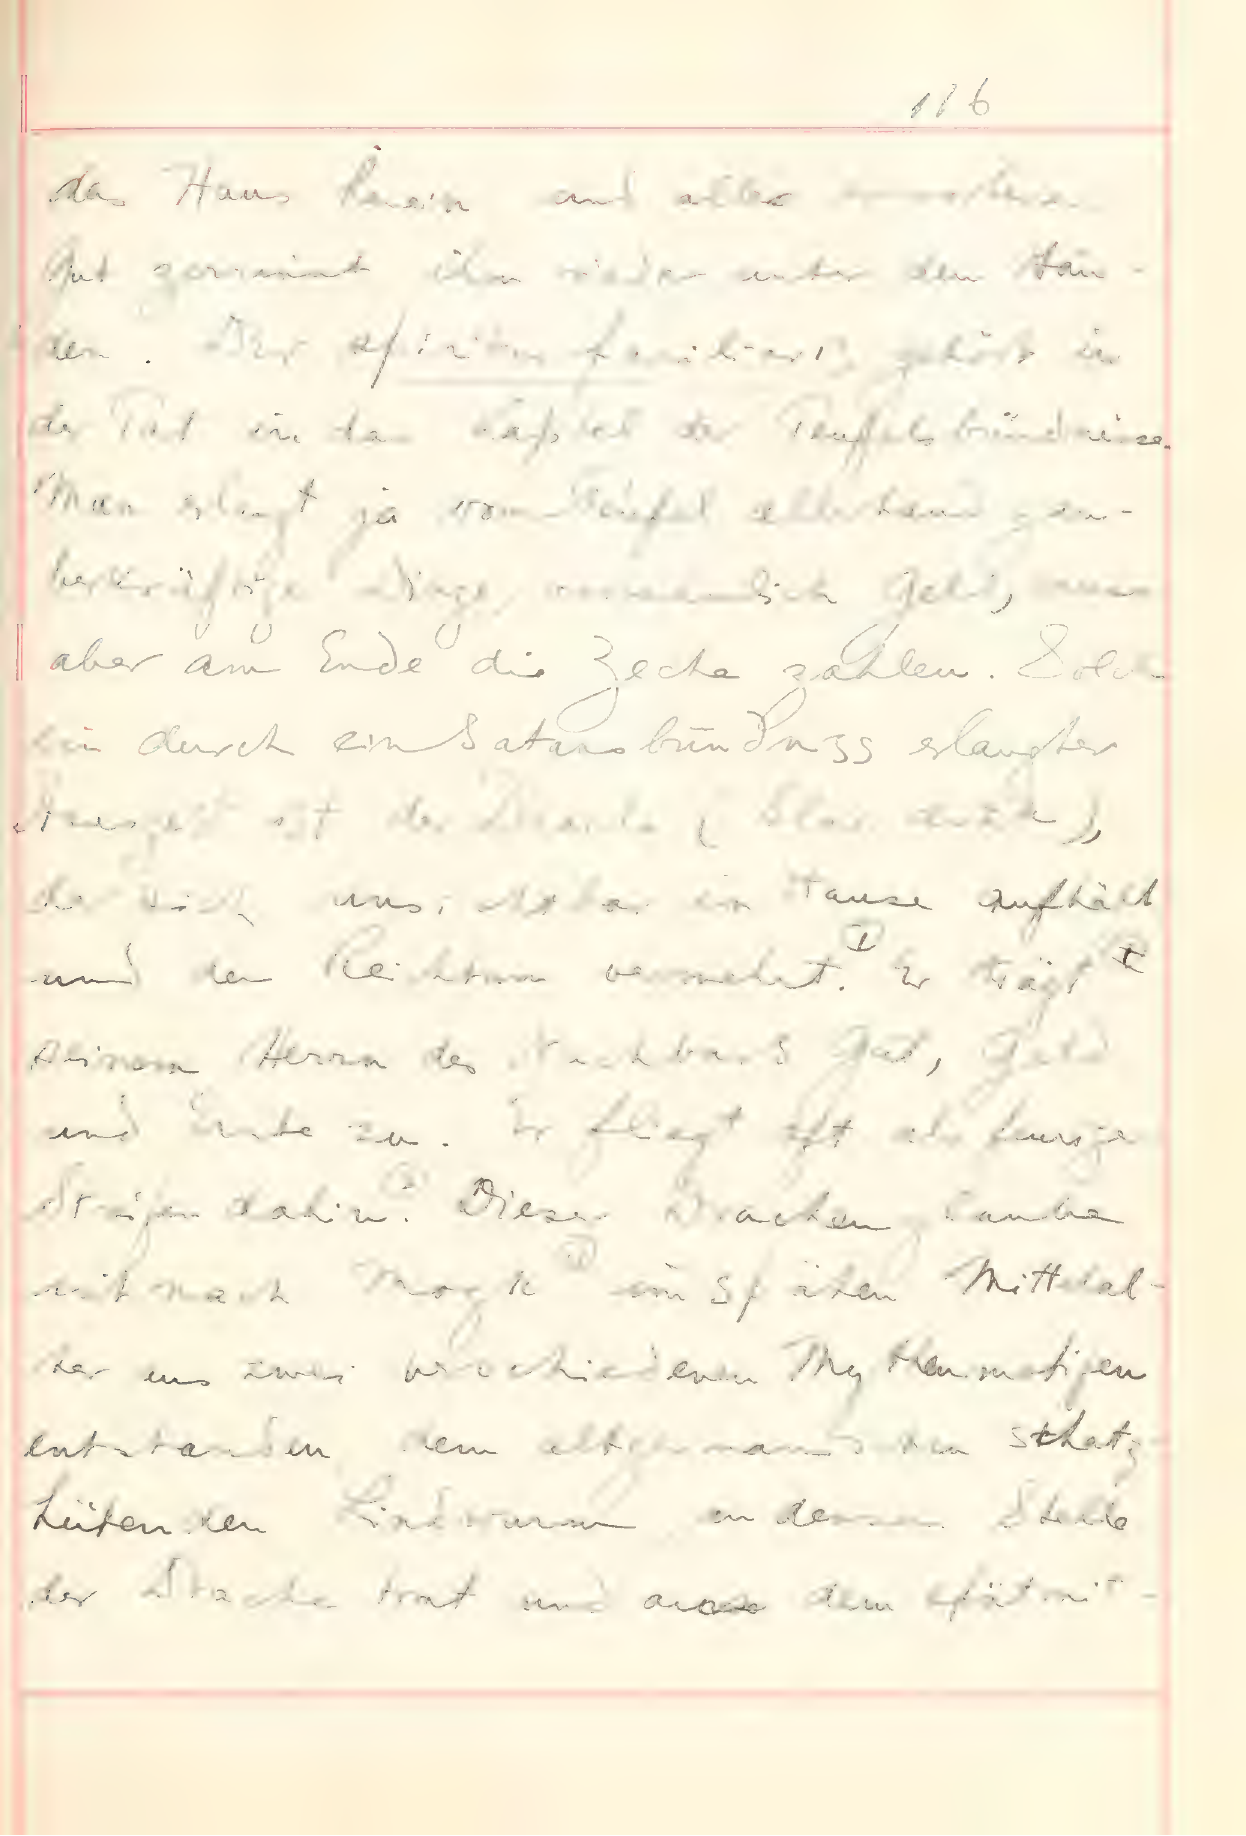 116
das Haus herein und alles erworbene
Gut zerrinnt ihm wieder unter den Hän-
den. Der spiritus familiaris gehört in
der Tat in das Kapitel der Teufelsbündnisse.
Man erlangt ja vom Teufel allerhand zau-
berkräftige Dinge, vornehmlich Geld, muss
aber am Ende die Zeche zahlen. Solch
ein durch ein Satansbündniss erlangter
ist der Drache
der sich unsichtbar im Hause aufhält
und den Reichtum vermehrt. Er trägt
seinem Herrn des Nachbars Gut, Geld
und Ernte zu. Er fliegt oft als feuriger
Streifen dahin. Dieser Drachenglaube
ist nach Mogk im späten Mittelal-
ter aus zwei verschiedenen Mythenmotiven
entstanden dem altgermanischen schatz-
hütenden Lindwurm an dessen Stelle
der Drache trat und aus dem spätmit-